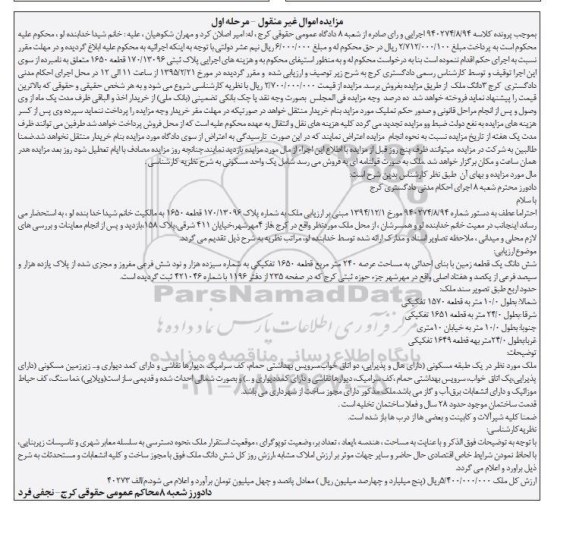 مزایده اموال غیر منقول - مرحله اول
بموجب پرونده کلاسه ۹۴۰۲۷۴/۸/۹۴ اجرایی و رای صادره از شعبه ۸ دادگاه عمومی حقوقی کرج، له: امیر اصلان کرد و مهران شکوهیان ، علیه : خانم شیدا خدابنده لو ، محکوم علیه
محکوم است به پرداخت مبلغ ۲/۷۱۲/۰۰۰/۱۰۰ ریال در حق محکوم له و مبلغ ۶/۰۰۰/۰۰۰ ریال نیم عشر دولتی با توجه به اینکه اجرائیه به محکوم علیه ابلاغ گردیده و در مهلت مقرر
نسبت به اجرای حکم اقدام ننموده است بنا به درخواست محکوم له و به منظور استیفای محکوم به و هزینه های اجرایی پلاک ثبتی ۱۷۰/۱۳۰۹۶ قطعه ۱۶۵۰ متعلق به نامبرده از سوی
این اجرا توقیف و توسط کارشناس رسمی دادگستری کرج به شرح زیر توصیف و ارزیابی شده و مقرر گردیده در مورخ ۱۳۹۵/۲/۲۱ از ساعت ۱۱ الی ۱۲ در محل اجرای احکام مدنی
دادگستری کرج ۳دانگ ملک از طریق مزایده بفروش برسد. مزایده از قیمت ۲/۷۰۰/۰۰۰/۰۰۰ ریال با نظریه کارشناسی شروع می شود و به هر شخص حقیقی و حقوقی که بالاترین
قیمت را پیشنهاد نماید فروخته خواهد شد ده درصد وجه مزایده فی المجلس بصورت وجه نقد یا چک بانکی تضمینی (بانک ملی) از خریدار اخذ و الباقی ظرف مدت یک ماه از وی
وصول و پس از انجام مراحل قانونی و صدور حکم تملیک مورد مزاید بنام خریدار منتقل خواهد در صورتیکه در مهلت مقرر خریدار وجه مزایده را پرداخت ننماید سپرده وی پس از کسر
هزینه های مزایده به نفع دولت ضبط وو مزایده تجدید می گردد کلیه هزینه های نقل و انتقال به عهده محکوم علیه است که از محل فروش پرداخت خواهد شد طرفین می توانند ظرف
مدت یک هفته از تاریخ مزایده نسبت به نحوه انجام مزایده اعتراض نمایند که در این صورت تا رسیدگی به اعتراض از سوی دادگاه مورد مزایده بنام خریدار منتقل نخواهد شد.ضمنا
طالبین به شرکت در مزایده میتوانند ظرف پنج روز قبل از مزایده با اطلاع این اجراء از مال مورد مزایده بازدید نمایند.چنانچه روز مزایده مصادف با ایام تعطیل شود روز بعد مزایده هدر
همان ساعت و مکان برگزار خواهد شد .ملک به صورت قولنامه ای به فروش می رسد شامل یک واحد مسکونی به شرح نظریه کارشناسی.
مال مورد مزایده و بهای آن طبق نظر کارشناس بدین شرح است:
دادورز محترم شعبه ۸ اجرای احکام مدنی دادگستری کرج
با سلام
احتراما عطف به دستور شماره ۹۴۰۲۷۴/۸/۹۴ مورخ ۱۳۹۴/۱۲/۱ مبنی بر ارزیابی ملک به شماره پلاک ۱۷۰/۱۳۰۹۶ قطعه ۱۶۵۰ به مالکیت خانم شیدا خدا بنده لو ، به استحضار می
رساند اینجانب در معیت خانم خدابنده لو و همسرشان ، از محل ملک موردنظر واقع در کرج فاز ۴مهرشهر،خیابان ۴۱۱ شرقی،پلاک ۱۵۸،بازدید و پس از انجام معاینات و بررسی های
لازم محلی و میدانی ، ملاحظه تصاویر اسناد و مدارک ارائه شده توسط خدابنده لو، مراتب نظریه به شرح ذیل تقدیم می گردد.
موضوع ارزیابی:
شش دانگ یک قطعه زمین با بنای احداثی به مساحت عرصه ۲۴۰ متر مربع قطعه ۱۶۵۰ تفکیکی به شماره سیزده هزار و نود شش فرعی مفروز و مجزی شده از پلاک یازده هزار و
سیصد فرعی از یکصد و هفتاد اصلی واقع در مهرشهر جزء حوزه ثبتی کرج که در صفحه ۲۳۵ از دفتر ۱۱۹۶ با شماره ۴۲۱۰۴۶ ثبت گردیده است.
حدود اربع طبق تصویر سند ملک:
شمالا: بطول ۱۰/۰ متر به قطعه ۱۵۷۰ تفکیکی
شرقا بطول ۲۴/۰ متر به قطعه ۱۶۵۱ تفکیکی
جنوبا: بطول ۱۰/۰ متر به خیابان ۱۰متری
غربا:بطول ۲۴/۰متر به قطعه ۱۶۴۹ تفکیکی
توضیحات:
ملک مورد نظر در یک طبقه مسکونی (دارای هال و پذیرایی، دو اتاق خواب،سرویس بهداشتی حمام، کف سرامیک ،دیوارها نقاشی و دارای کمد دیواری و.. زیرزمین مسکونی (دارای
پذیرایی،یک اتاق خواب، سرویس بهداشتی حمام ، کف سرامیک ، دیوارها نقاشی و دارای کمددیواری و ...) و بصورت شمالی احداث شده و قدیمی ساز است(ویلایی) .نما سنگ، کف حیاط
موزائیک و دارای انشعابات برق،آب و گاز می باشد.ملک مذکور دارای مجوز ساخت از شهرداری می باشد.
قدمت ساختمان موجود حدود ۲۸ سال و فعلا ساختمان تخلیه است .
ضمنا کلیه شیرآلات و کابینت و بعضی ها از درب ها باز شده است.
نظریه کارشناسی:
با توجه به توضیحات فوق الذکر و با عنایت به مساحت ، هندسه ،ابعاد ، تعداد بر، وضعیت توپوگرای ، موقعیت استقرار ملک ،نحوه دسترسی به سلسله معابر شهری و تاسیسات زیربنایی،
با لحاظ نمودن شرایط خاص اقتصادی حال حاضر و سایر جهات موثر بر ارزش املاک مشابه ،ارزش روز کل شش دانگ ملک فوق با مجوز ساخت و کلیه انشعابات و مستحدثات به شرح
ذیل براورد و اعلام می گردد.
ارزش کل ملک ۵/۴۰۰/۰۰۰/۰۰۰ریال (پنج میلیارد و چهارصد میلیون ریال ) معادل پانصد و چهل میلیون تومان برآورد و اعلام می شود.م/الف ۴۰۲۷۳
دادورز شعبه ۸محاکم عمومی حقوقی کرج - نجفی فرد
ParsNamadData